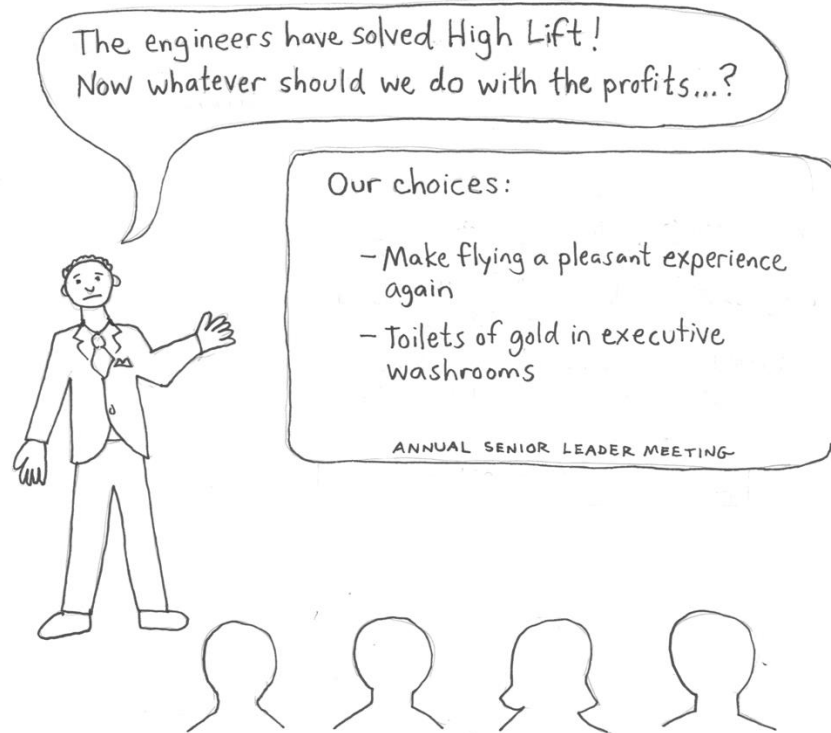 The engineers have solved High Lift!
Now whatever should we do with the profits...?
Our choices:
- Make flying a pleasant experience
again
- Toilets of gold in executive
washrooms
ANNUAL SENIOR LEADER MEETING